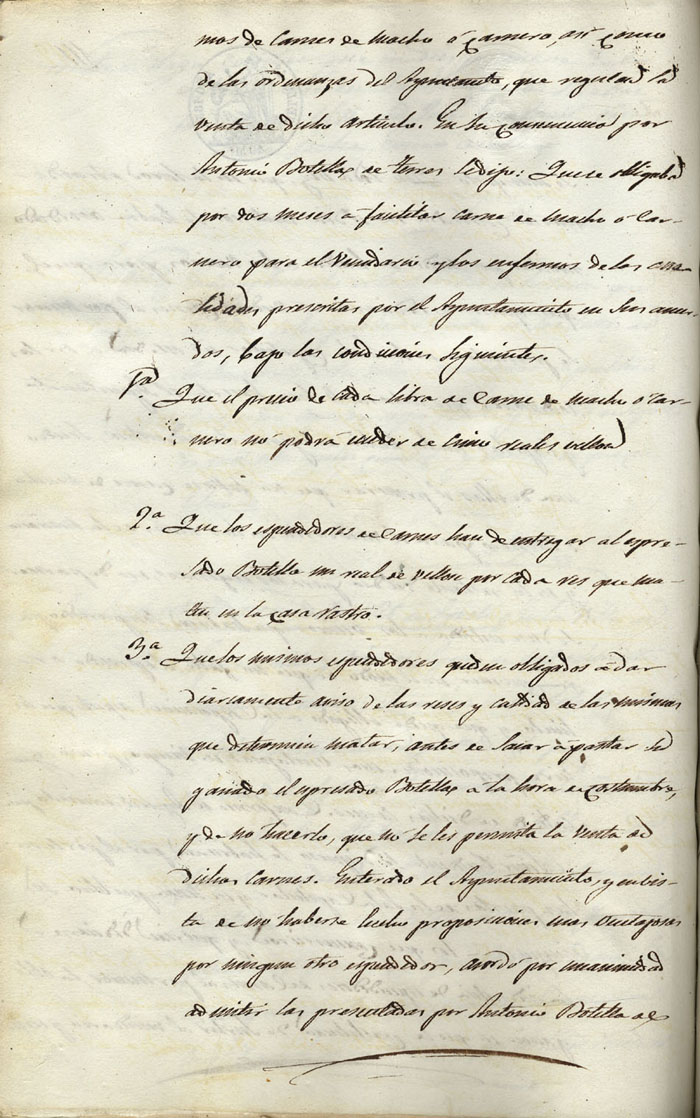 mos de Carnes de Macho ó Carnero, así como
de las ordenanzas del Ayuntamto, que regulan la
venta de dicho articulo. En su consecuencia por
Antonio Botella, de terros se dijo: Que se obligaba
por dos meses á facilitar carne de Macho ó Car-
nero para el Vecindario y los enfermos de las cua-
lidades prescritas por el Ayuntamiento en sus acuer-
dos, bajo las condiciones siguientes.
1ª Que el precio de cada libra de Carne de Macho ó Car-
nero no podrá esceder de Cinco reales vellon
2.ª Que los espendedores de Carnes han de entregar al espre-
sado Botella un real de vellon por cada res que ma-
ten en la Casa rastro.
3.ª Que los mismos espendedores queden obligados á dar
diariamente aviso de las reses y calidad de las mismas
que determinen matar, antes de sacar á pastar su
ganado el espresado Botella, á la hora de costumbre,
y de no hacerlo, que no se les permita la venta de
dichas Carnes. Enterado el Ayuntamiento, y en vis-
ta de no haberse hecho proposiciones mas ventajosas
por ningun otro espendedor, acordó por unanimidad
admitir las presentadas por Antonio Botella de